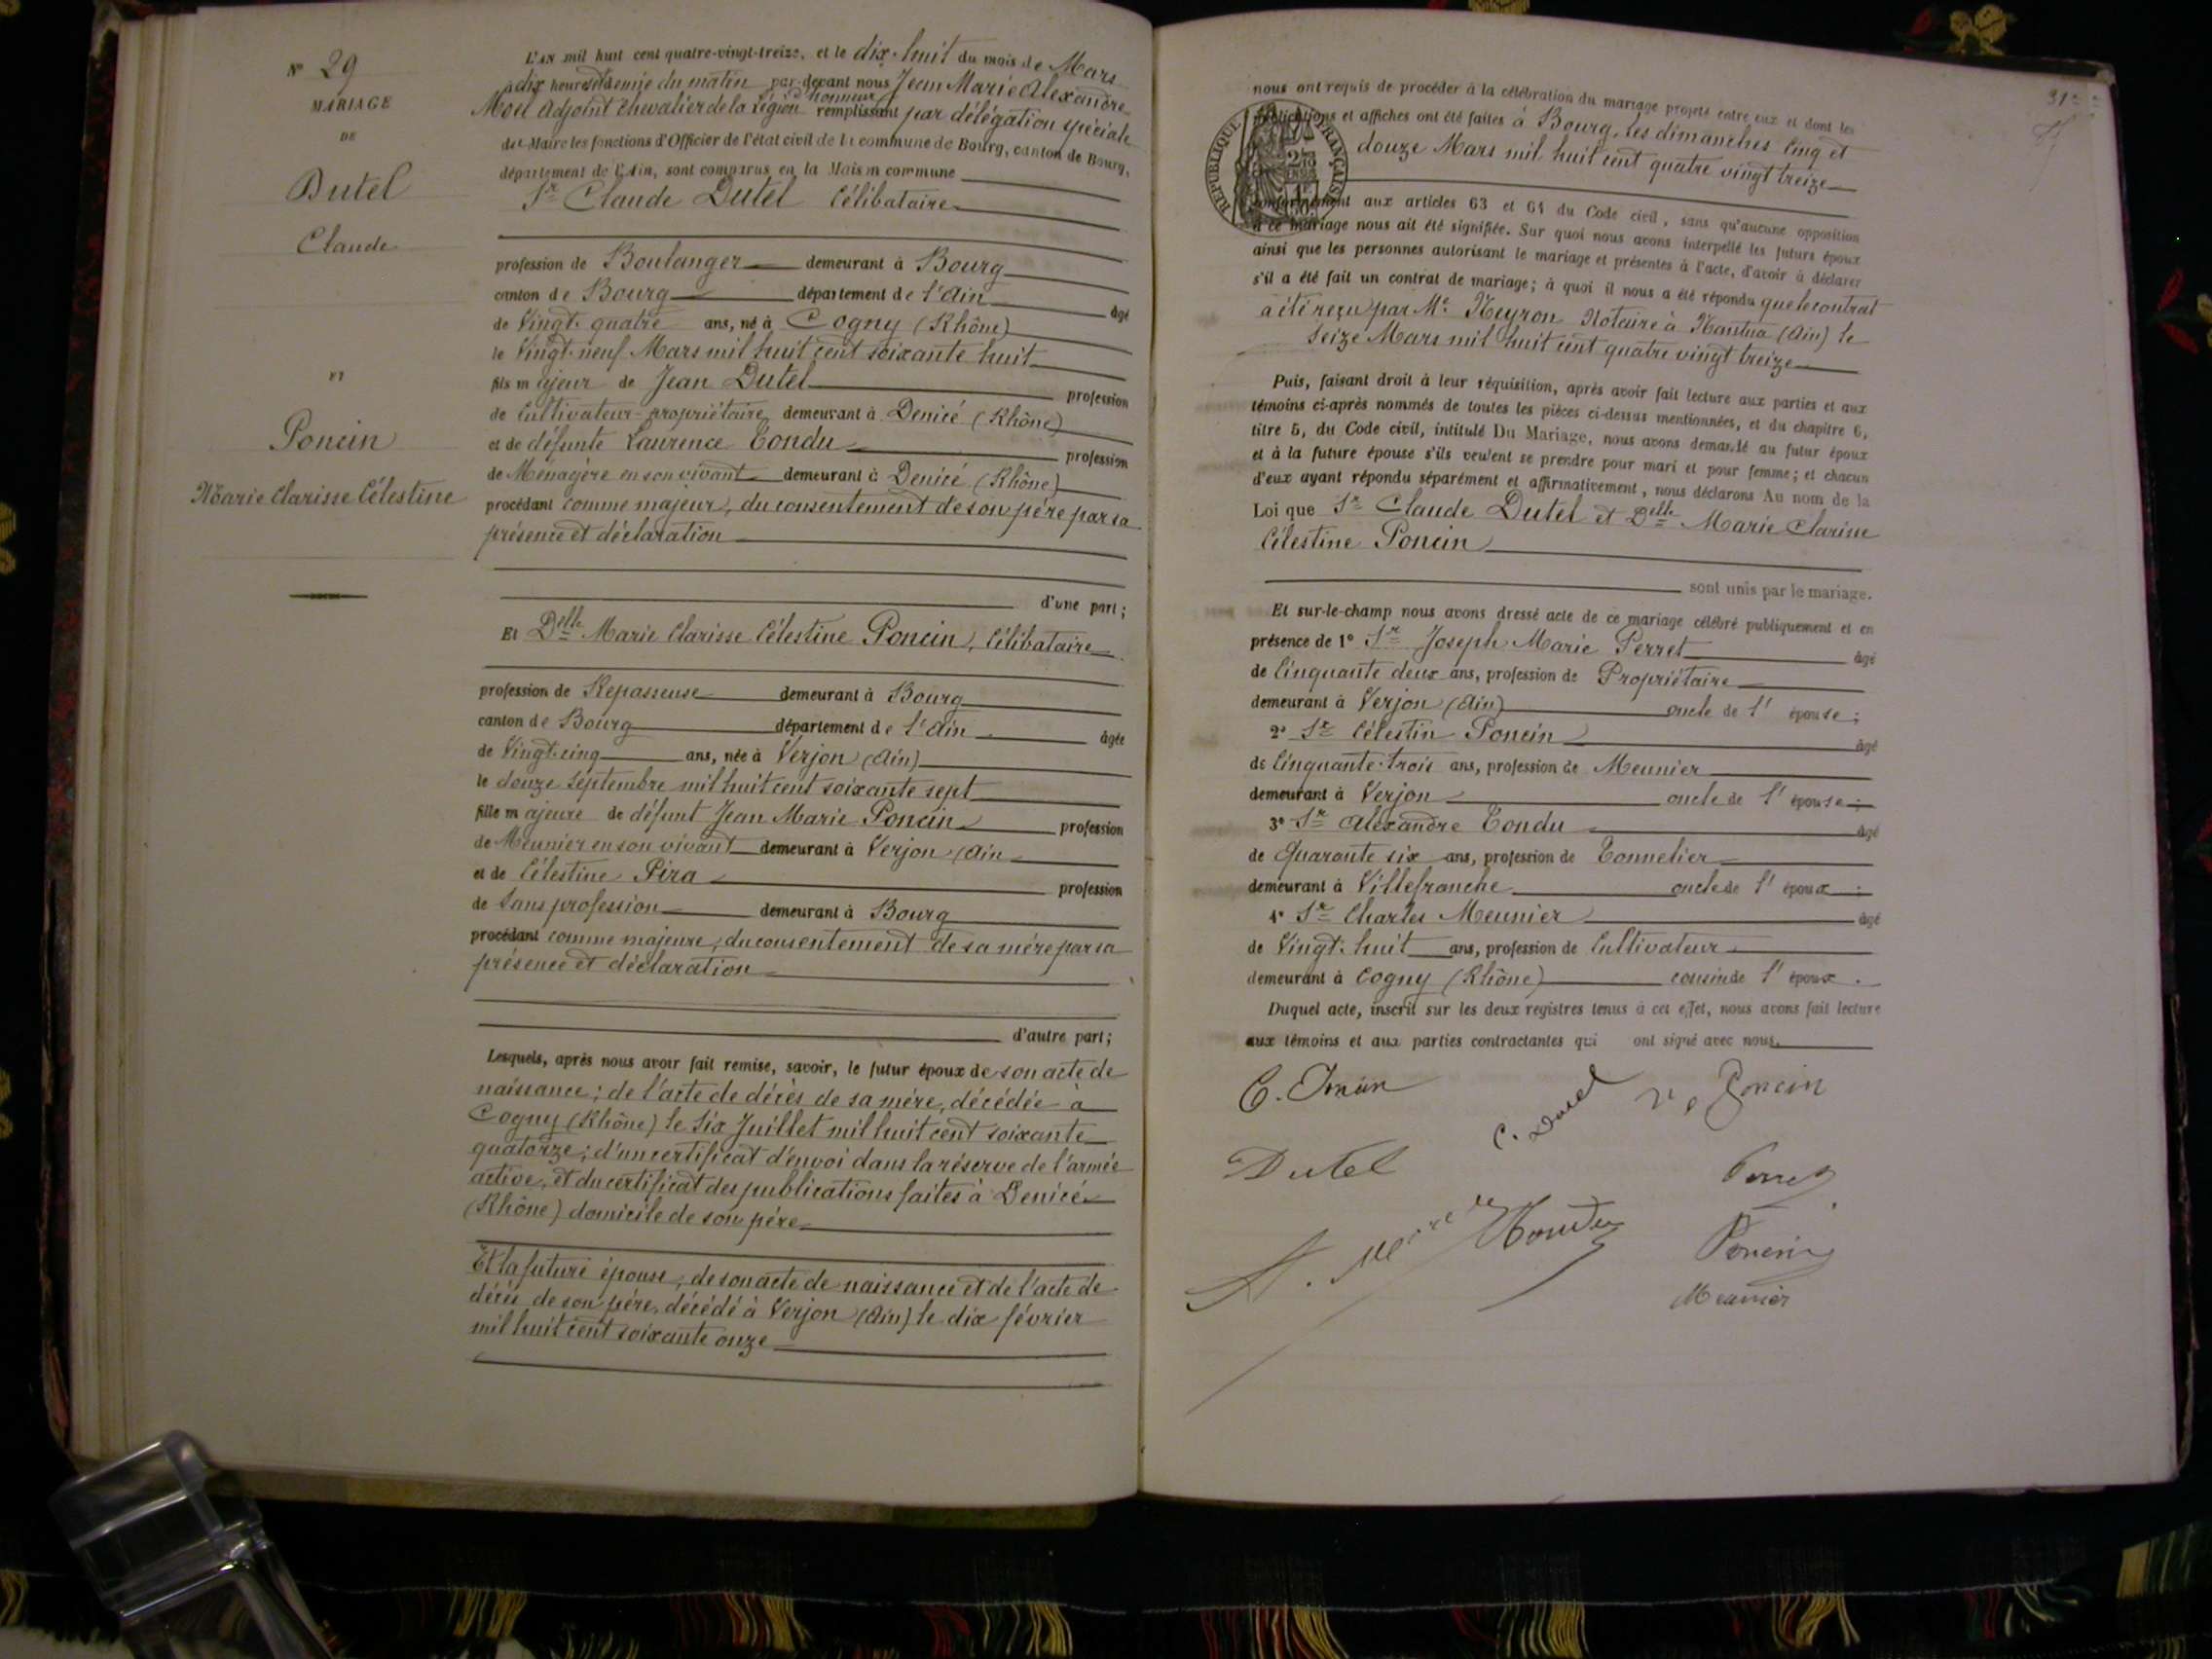 N° 29
MARIAGE
DE
Dutel
Claude
ET
Poncin
Marie Clarisse Célestine
L'AN mil huit cent quatre-vingt-treize, et le dix-huit du mois de Mars
à dix heures et demie du matin par-devant nous Jean Marie Alexandre
d'honneur
Adjoint Chevalier de la Légion remplissant par délégation spéciale
du Maire les fonctions d'Officier de l'état civil de la commune de Bourg, canton de Bourg,
département de l'Ain, sont comparus en la Maison commune
Sr Claude Dutel Célibataire
profession de Boulanger demeurant à Bourg
canton de Bourg département de l'Ain âgé
de Vingt-quatre ans, né à Cogny (Rhône)
le Vingt-neuf Mars mil huit cent soixante huit
fils majeur de Jean Dutel profession
de Cultivateur-propriétaire demeurant à Denicé (Rhône)
et de défunte Laurence Tondu profession
de Ménagère en son vivant demeurant à Denicé (Rhône)
procédant comme majeur, du consentement de son père par sa
présence et déclaration
d'une part;
Et Delle Marie Clarisse Célestine Poncin, Célibataire
profession de Repasseuse demeurant à Bourg
canton de Bourg département de l'Ain âgée
de Vingt-cinq ans, née à Verjon (Ain)
le douze Septembre mil huit cent soixante sept
fille majeure de défunt Jean Marie Poncin profession
de Meunier en son vivant demeurant à Verjon (Ain
et de Célestine Pira profession
de Sans profession demeurant à Bourg
procédant comme majeure, du consentement de sa mère par sa
présence et déclaration
d'autre part;
Lesquels, après nous avoir fait remise, savoir, le futur époux de son acte de
naissance; de l'acte de décès de sa mère, décédée à
Cogny (Rhône) le Six Juillet mil huit cent soixante
quatorze; d'un certificat d'envoi dans la réserve de l'armée
active, et du certificat des publications faites à Denicé
(Rhône) domicile de son père
Et la future épouse, de son acte de naissance et de l'acte de
décès de son père, décédé à Verjon (Ain) le dix février
mil huit cent soixante onze
31e
nous ont requis de procéder à la célébration du mariage projeté entre eux et dont les
publications et affiches ont été faites à Bourg, les dimanches Cinq et
douze Mars mil huit cent quatre vingt treize
REPUBLIQUE FRANÇAISE
conformément aux articles 63 et 64 du Code civil, sans qu'aucune opposition
à ce mariage nous ait été signifiée. Sur quoi nous avons interpellé les futurs époux
ainsi que les personnes autorisant le mariage et présentes à l'acte, d'avoir à déclarer
s'il a été fait un contrat de mariage; à quoi il nous a été répondu que le contrat
a été reçu par Me Neyron Notaire à Nantua (Ain) le
Seize Mars mil huit cent quatre vingt treize
Puis, faisant droit à leur réquisition, après avoir fait lecture aux parties et aux
témoins ci-après nommés de toutes les pièces ci-dessus mentionnées, et du chapitre 6,
titre 5, du Code civil, intitulé Du Mariage, nous avons demandé au futur époux
et à la future épouse s'ils veulent se prendre pour mari et pour femme; et chacun
d'eux ayant répondu séparément et affirmativement, nous déclarons Au nom de la
Loi que Sr Claude Dutel et Delle Marie Clarisse
Célestine Poncin
sont unis par le mariage.
Et sur-le-champ nous avons dressé acte de ce mariage célébré publiquement et en
présence de 1° Sr Joseph Marie Perret âgé
de Cinquante deux ans, profession de Propriétaire
demeurant à Verjon (Ain) oncle de l'épouse;
2° Sr Célestin Poncin âgé
de Cinquante-trois ans, profession de Meunier
demeurant à Verjon oncle de l'épouse;
3° Sr Alexandre Tondu âgé
de Quarante six ans, profession de Tonnelier
demeurant à Villefranche oncle de l'époux;
4° Sr Charles Meunier âgé
de Vingt-huit ans, profession de Cultivateur
demeurant à Cogny (Rhône) cousin de l'époux.
Duquel acte, inscrit sur les deux registres tenus à cet effet, nous avons fait lecture
aux témoins et aux parties contractantes qui ont signé avec nous.
C. Poncin
C. Dutel
Ve Poncin
Dutel
Perret
Tondu
Poncin
Meunier